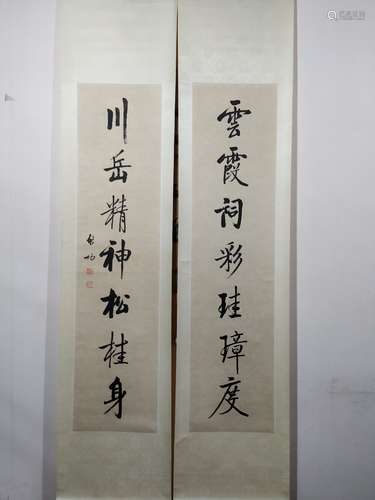 雲霞祠彩珪璋度
川岳精神松桂身
啓功